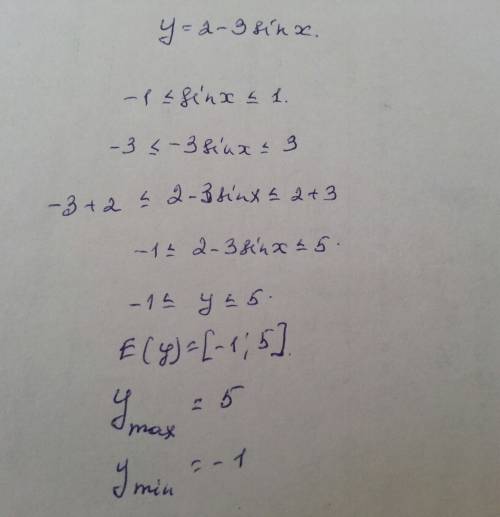 y = 2 - 3 sin x.
-1 ≤ sin x ≤ 1.
-3 ≤ -3 sin x ≤ 3
-3 + 2 ≤ 2 - 3 sin x ≤ 2 + 3
-1 ≤ 2 - 3 sin x ≤ 5.
-1 ≤ y ≤ 5.
E(y) = [-1; 5].
y max = 5
y min = -1